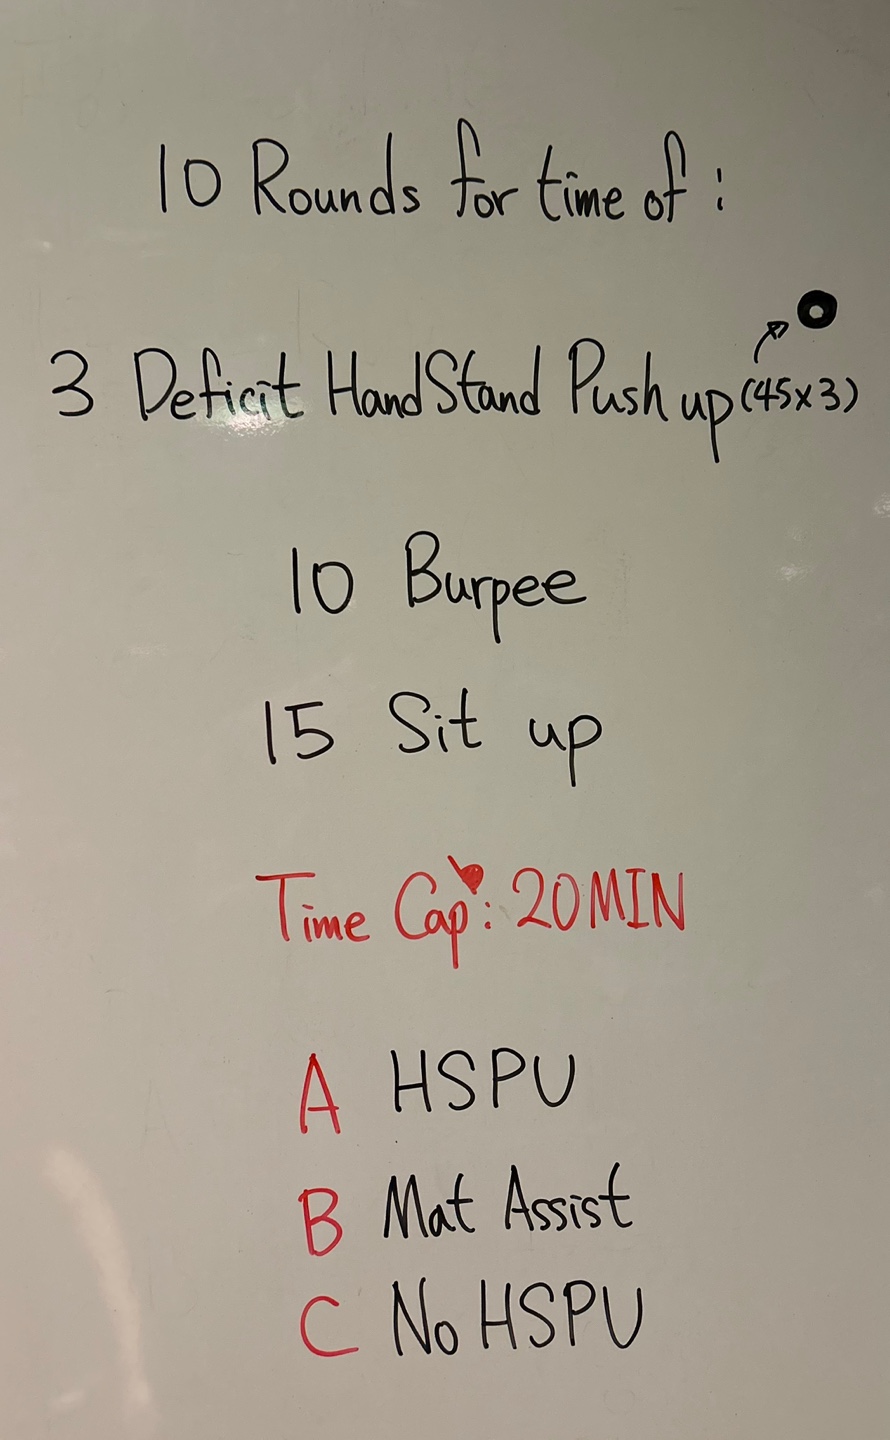 10 Rounds for time of :
3 Deficit HandStand Push up (45x3)
10 Burpee
15 Sit up
Time Cap : 20MIN
A HSPU
B Mat Assist
C No HSPU